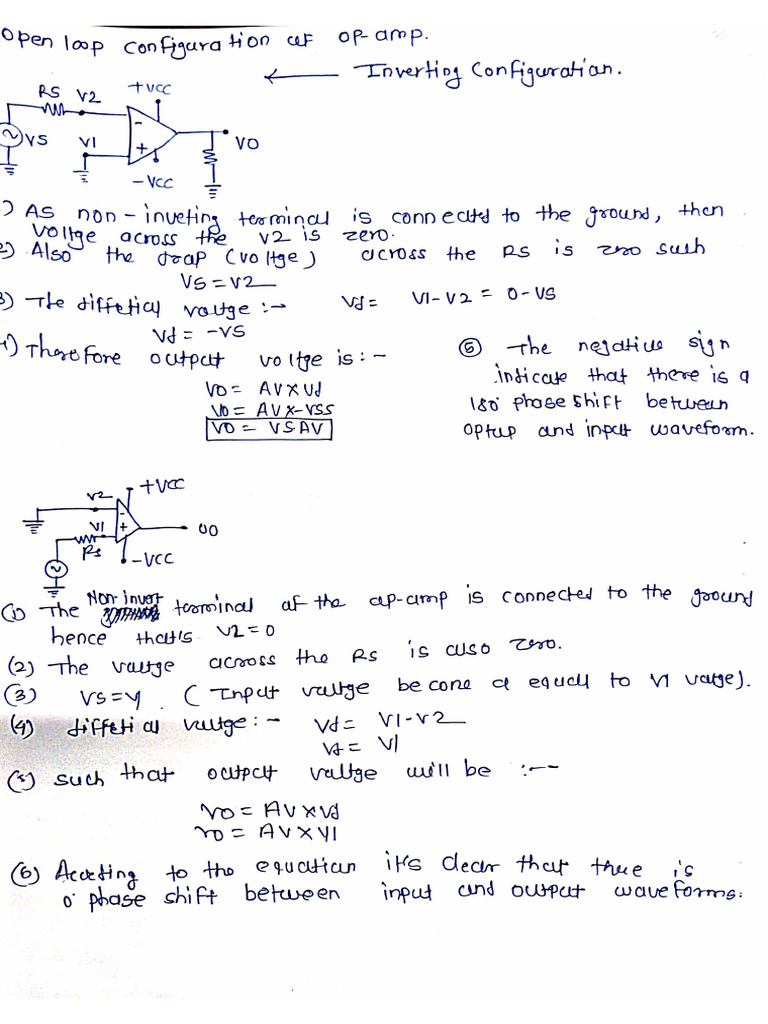 Open loop configuration of op-amp.
← Inverting Configuration.
RS V2 +VCC
VS V1 - + VO
-VCC
1) AS non-inveting terminal is connected to the ground, then
voltge across the V2 is zero.
2) Also the drap (voltge) across the RS is zero such
VS = V2
3) The diffetial voltge :- Vd = V1-V2 = 0-VS
Vd = -VS
4) Therefore output voltge is :-
VO = AV x Vd
VO = AV x -VSS
VO = VSAV
⑤ The negative sign
indicate that there is a
180° phase shift between
optup and input waveform.
V2 +VCC
V1 - + VO
Rs -VCC
(1) The Non-invert terminal of the op-amp is connected to the ground
hence that's V2 = 0
(2) The voltge across the RS is also zero.
(3) VS = V1 (Input valtge be cone a equal to V1 valtge).
(4) diffetial valtge :- Vd = V1-V2
Vd = V1
(5) such that output valtge will be :--
VO = AV x Vd
VO = AV x V1
(6) Accoting to the equation it's clear that thre is
0° phase shift between input and output waveforms.